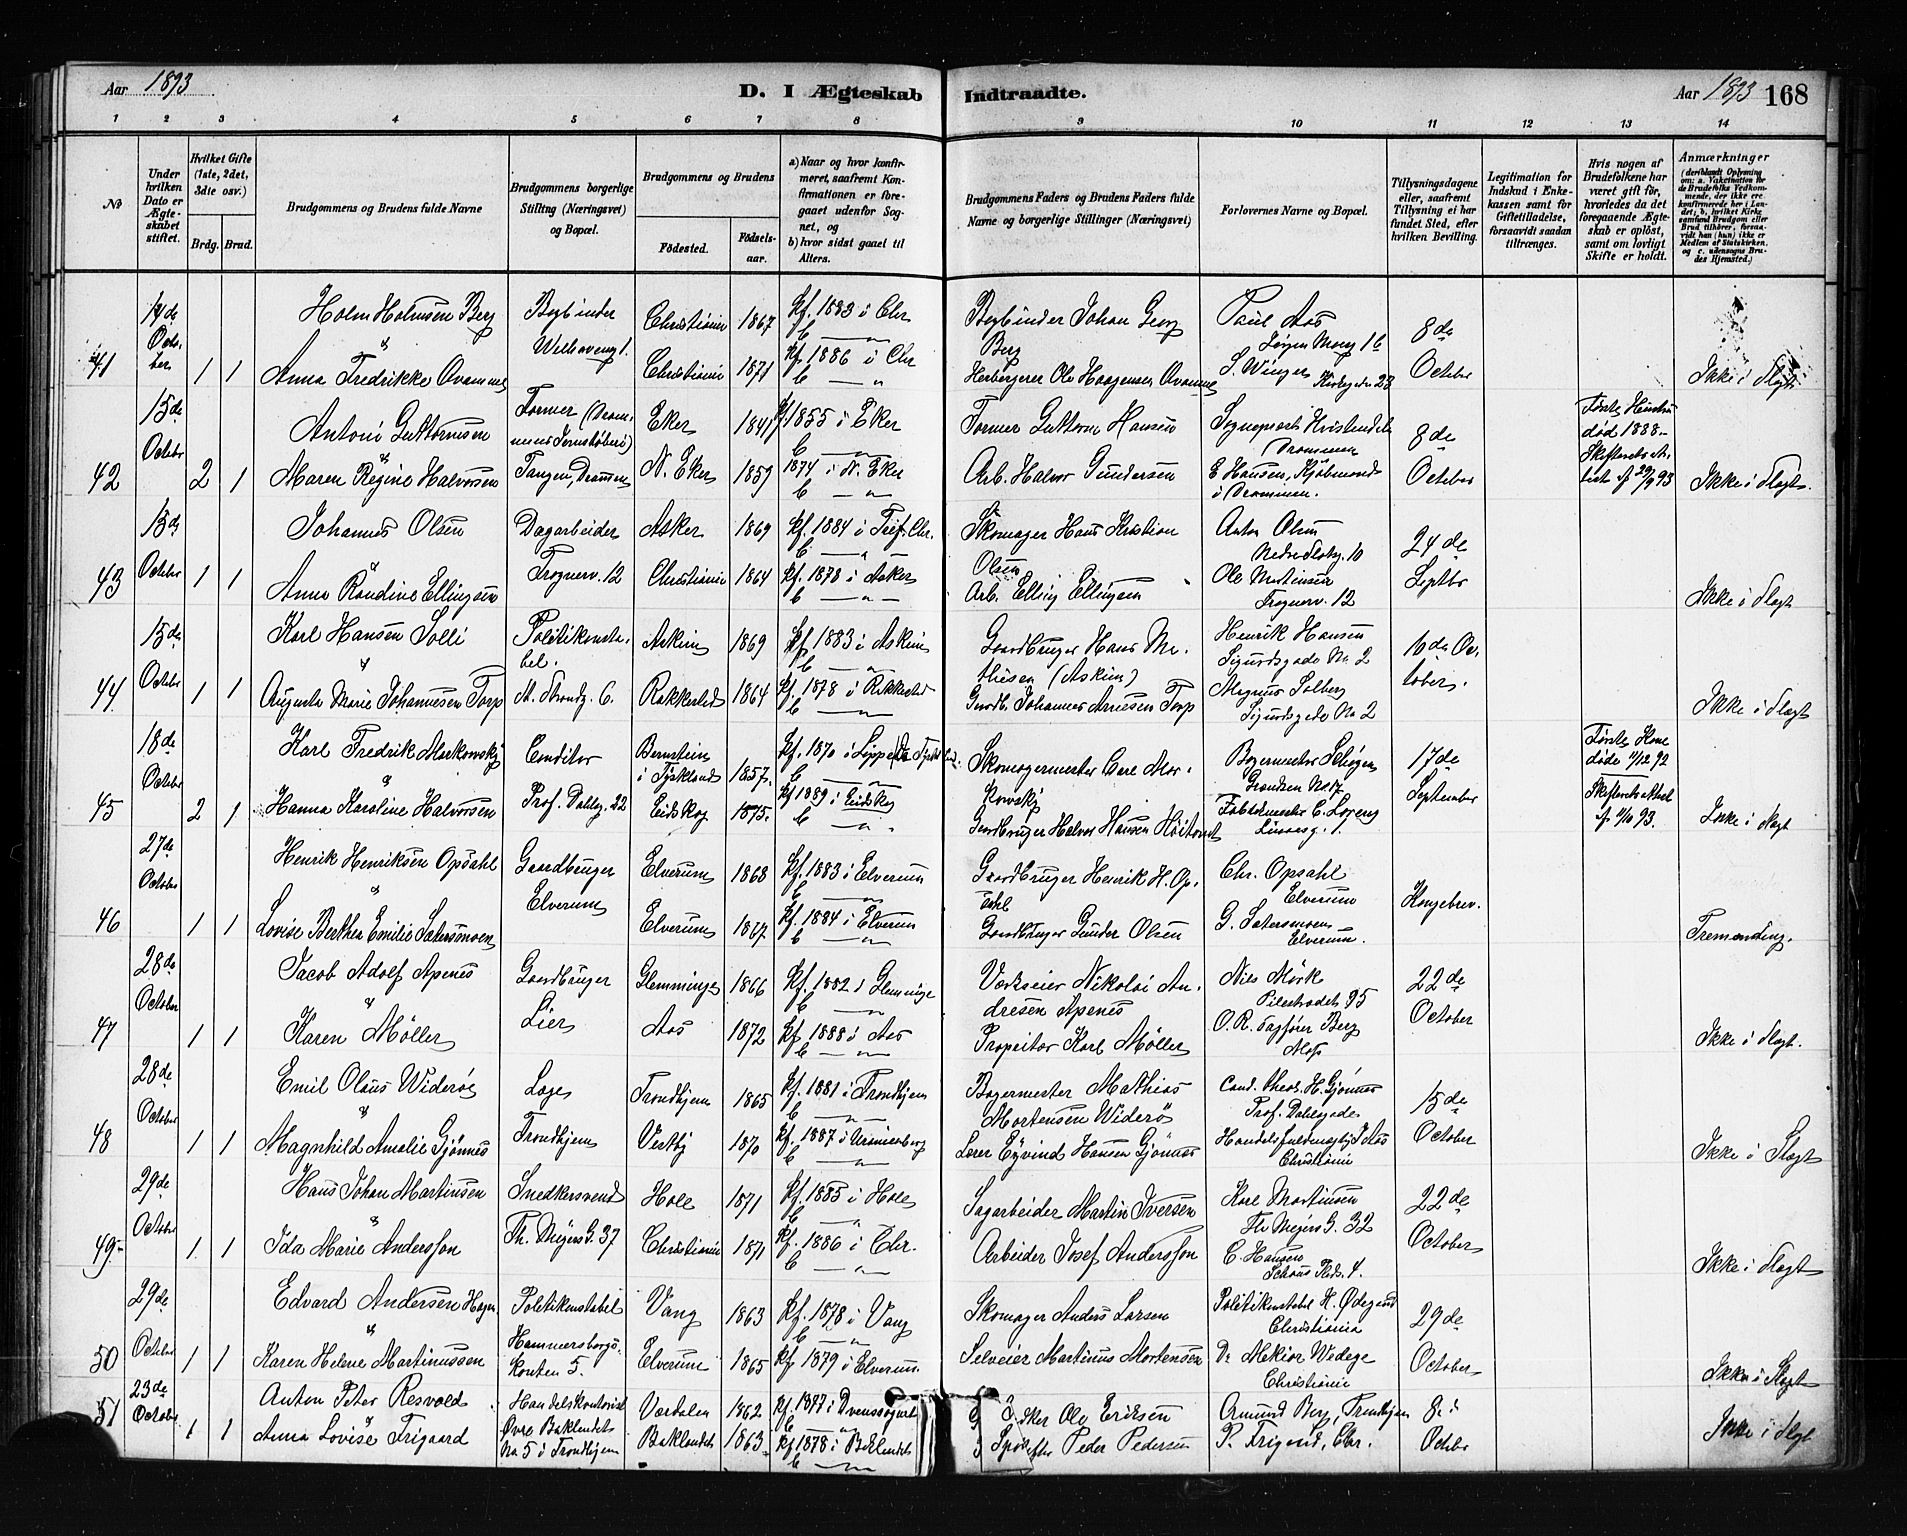 Aar 1893
D. I Ægteskab
Indtraadte.
Aar 1893 168
1 2 3 4 5 6 7 8 9 10 11 12 13 14
No
Under hvilken Dato er Ægteskabet stiftet.
Hvilket Gifte (1ste, 2det, 3die osv.)
Brdg. Brud.
Brudgommens og Brudens fulde Navne
Brudgommens borgerlige Stilling (Næringsvei) og Bopæl.
Brudgommens og Brudens
Fødested.
Fødselsaar.
a) Naar og hvor konfirmeret, saafremt Konfirmationen er foregaaet udenfor Sognet, og
b) hvor sidst gaaet til Alters.
Brudgommens Faders og Brudens Faders fulde Navne og borgerlige Stillinger (Næringsvei)
Forlovernes Navne og Bopæl.
Tillysningsdagene eller, saafremt Tillysning ei har fundet Sted, efter hvilken Bevilling.
Legitimation for Indskud i Enkekassen samt for Giftetilladelse, forsaavidt saadan tiltrænges.
Hvis nogen af Brudefolkene har været gift før, hvorledes da det foregaaende Ægteskab er opløst, samt om lovligt Skifte er holdt.
Anmærkninger
(deriblandt Oplysning om: a. Vaksination for de Brudefolks Vedkommende, der ikke ere konfirmerede her i Landet; b. hvilket Kirkesamfund Brudgom eller Brud tilhører, forsaavidt han (hun) ikke er Medlem af Statskirken, og c. udensogns Brudes Hjemsted.)
41 14de October 1 1
Holm Holmsen Berg
&
Anna Fredrikke
Bogbinder
Christiania 1867 kf. 1883 i Chr
Christiania 1871 kf 1886 i Chr
Bogbinder Johan Georg Berg
Herbergerer Ole Haagensen
Paul Aas
Jørgen Moeg 16
S. Winger Kirkegaden 28
8de October
Ikke i Slægt
42 15de October 2 1
Antoni Guttormsen
&
Maren Regine Halvorsen
Former (Drammens Jernstøberi)
Tangen, Drammen
Eker 1841 kf 1855 i Eker
N. Eker 1859 1874 i N. Eker
Former Guttorm Hansen
Arb. Halvor Gundersen
Drammen
E Hansen, Kjøbmand i Drammen.
8de October
Første Hustru død 1888.
Skifteretsattest af 29/9 93
Ikke i Slægt.
43 13de October 1 1
Johannes Olsen
&
Anna Randine Ellingsen
Dagarbeider
Frognerv. 12
Asker 1869 kf. 1884 i Tref. Chr.
Christiania 1864 kf. 1878 i Asker
Skomager Hans Kristian Olsen
Arb. Elling Ellingsen
Anton Olsen
Nedre Slotsg. 10
Ole Martinsen
Frognerv. 12
24de Septbr
Ikke i Slægt
44 15de October 1 1
Karl Hansen Solli
&
Augusta Marie Johannesen Torp
Politikonstabel.
Askim 1869 kf. 1883 i Askim
Rakkestad 1864 kf. 1878 i Rakkestad
Gaardbruger Hans Mathisen (Askim)
Gaardb. Johannes Arnesen Torp
Henrik Hansen
Sigurdsgade No 2
Magnus Solberg
Sigurdsgade No 2
October.
Ikke i Slægt
45 18de October 2 1
Karl Fredrik Markowsky
&
Hanna Karoline Halvorsen
Conditor
Prof. Dahlsg. 22
Bernstein i Tyskland 1857.
Eidskog 1875. kf 1889 i Eidskog
Skomagermester Carl Markowsky
Gaardbruger Halvor Hansen
17de September
Første Kone døde 11/12 92
Ikke i Slægt
46 27de October 1 1
Henrik Henriksen Opsahl
&
Lovise Berthea Emilie Sætersmoen
Gaardbruger
Elverum
Elverum 1868 kf. 1883 i Elverum
Elverum 1867 kf. 1884 i Elverum
Gaardbruger Henrik H. Opsahl
Gaardbruger Gunder Olsen
Chr. Opsahl
Elverum
G. Sætersmoen
Elverum.
Kongebrev.
47 28de October 1 1
Jacob Adolf Apenes
&
Karen Møller
Gaardbruger
Lier
Glemminge 1866 kf. 1882 i Glemminge
Aas 1872 kf. 1888 i Aas
Værkseier Nikolai Andresen Apenes
Propritær Karl Møller
Nils Mørk
Pilestrædet 95
O. R. Sagfører Berg
Moss
22de October
Ikke i Slægt.
48 28de October 1 1
Emil Olaus Widerøe
&
Magnhild Amalie Gjønnes
Læge
Trondhjem
Trondhjem 1865 kf. 1881 i Trondhjem
Vestby 1870 kf. 1887 i
Bagermester Mathias Mortensen Widerø
Lærer Eyvind Hansen Gjønnes
Cand. theol. H. Gjønnes
Prof. Dahlsgade
Handelsfuldmægtig J. Aas
Christiania
15de October
Ikke i Slægt
49 29de October 1 1
Hans Johan Martinsen
&
Ida Marie Andersson
Snedkersvend
Th. Meyers G. 37
Hole 1871 kf. 1885 i Hole
Christiania 1871 kf. 1886 i Chr.
Sagarbeider Martin Iversen
Arbeider Josef Andersson
Karl Martinsen
Th Meyers G. 32
C. Hansen
Schous Plads. 4.
22de October
Ikke i Slægt
50 29de October 1 1
Edvard Andersen Hagen
&
Karen Helene Martinussen
Politikonstabel
Hammersborgs-
5.
Vang 1863 kf. 1878 i Vang
Elverum 1865 kf 1879 i Elverum
Skomager Anders Larsen
Selveier Martinus Mortensen
Politikonstabel H. Ødegaard
Christiania
Dr Wedege
Christiania
29de October
Ikke i Slægt
51 23de October. 1 1
Anton Peter Resvold
&
Anna Lovise Frigaard
Handelskontorist
Øvre Baklandet No 5 i Trondhjem
Værdalen 1862
Baklandet 1863 kf 1878 i Baklandet
Ole Eriksen
Peder Pedersen
Amund Berg, Trondhjem
P. Frigaard, Chr.
8de Octbr
Ikke i Slægt